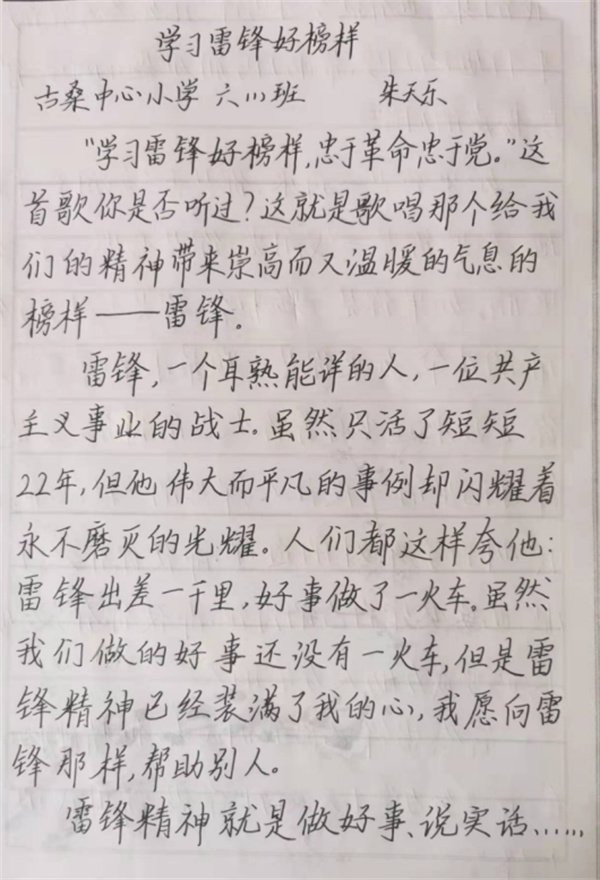 学习雷锋好榜样
古桑中心小学 六（1）班 朱天乐
"学习雷锋好榜样,忠于革命忠于党。"这
首歌你是否听过?这就是歌唱那个给我
们的精神带来崇高而又温暖的气息的
榜样——雷锋。
雷锋,一个耳熟能详的人,一位共产
主义事业的战士.虽然只活了短短
22年,但他伟大而平凡的事例却闪耀着
永不磨灭的光耀。人们都这样夸他:
雷锋出差一千里,好事做了一火车.虽然
我们做的好事还没有一火车,但是雷
锋精神已经装满了我的心,我愿向雷
锋那样,帮助别人。
雷锋精神就是做好事、说实话……